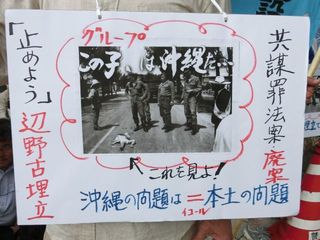 共謀罪法案・廃案
グループ
「止めよう」辺野古埋立
この子は沖縄だ
これを見よ!
沖縄の問題は=本土の問題
イコール